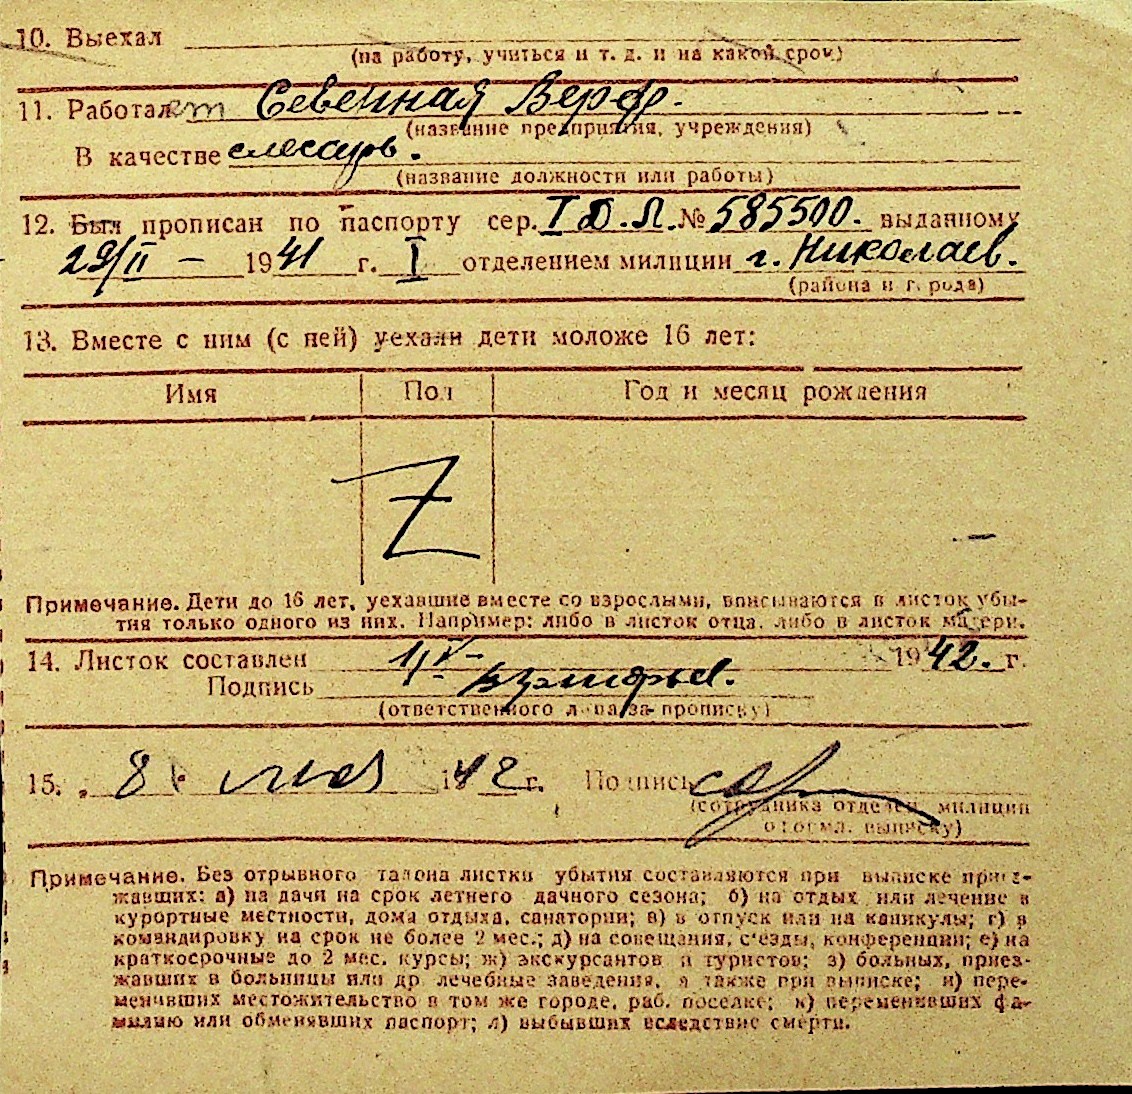 10. Выехал
(на работу, учиться и т. д. и на какой срок)
11. Работает Северная Верф.
(название предприятия, учреждения)
В качестве слесарь.
(название должности или работы)
12. Был прописан по паспорту сер. I Д.Л. № 585500. выданному
29/II – 1941 г. I отделением милиции г. Николаев.
(района и города)
13. Вместе с ним (с ней) уехали дети моложе 16 лет:
Имя Пол Год и месяц рождения
Z
Примечание. Дети до 16 лет, уехавшие вместе со взрослыми, вписываются в листок убы-
тия только одного из них. Например: либо в листок отца, либо в листок матери.
14. Листок составлен 1/V- 1942. г.
Подпись
(ответственного лица за прописку)
15. 8 1942 г. Подпись
(сотрудника отделен. милиции
оформл. выписку)
Примечание. Без отрывного талона листки убытия составляются при выписке приез-
жавших: а) на дачи на срок летнего дачного сезона; б) на отдых или лечение в
курортные местности, дома отдыха, санатории; в) в отпуск или на каникулы; г) в
командировку на срок не более 2 мес.; д) на совещания, съезды, конференции; е) на
краткосрочные до 2 мес. курсы; ж) экскурсантов и туристов; з) больных, приез-
жавших в больницы или др. лечебные заведения, а также при выписке; и) пере-
менивших местожительство в том же городе, раб. поселке; к) переменивших фа-
милию или обменявших паспорт; л) выбывших вследствие смерти.